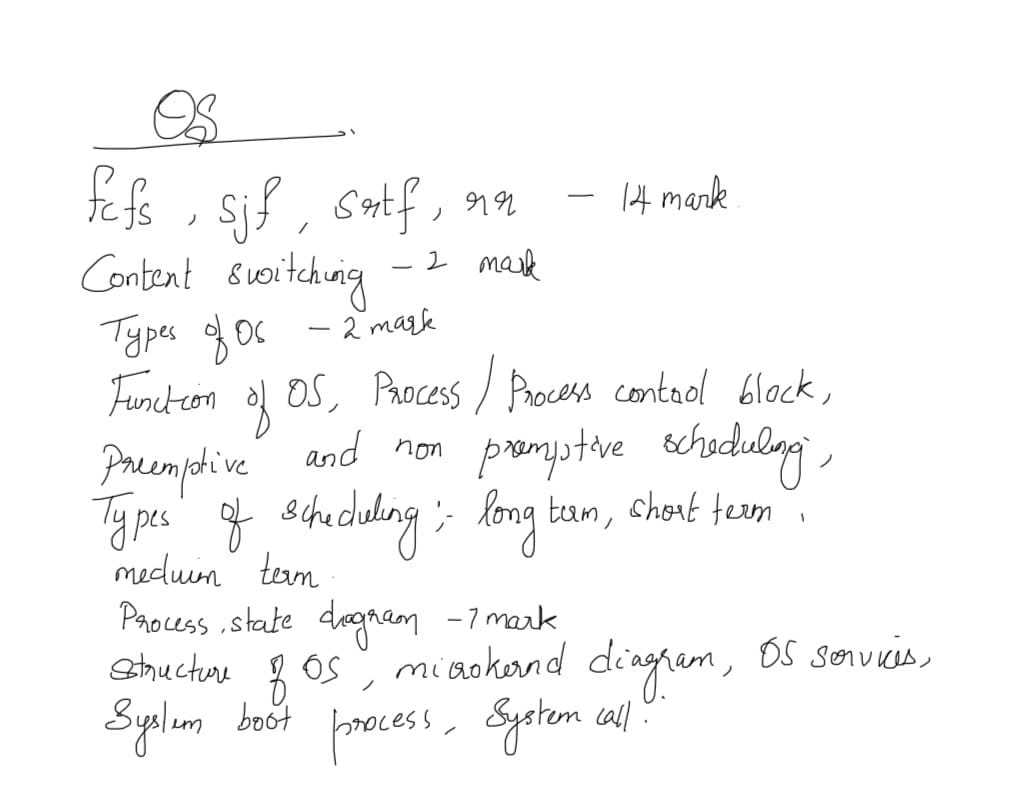 OS
fcfs, sjf, srtf, rr - 14 mark
Content switching - 2 mark
Types of OS - 2 mark
Function of OS, Process / Process control block,
Preemptive and non premptive scheduling,
Types of scheduling :- long term, short term,
medium term.
Process, state diagram - 7 mark
Structure of OS, microkernel diagram, OS services,
System boot process, System call.